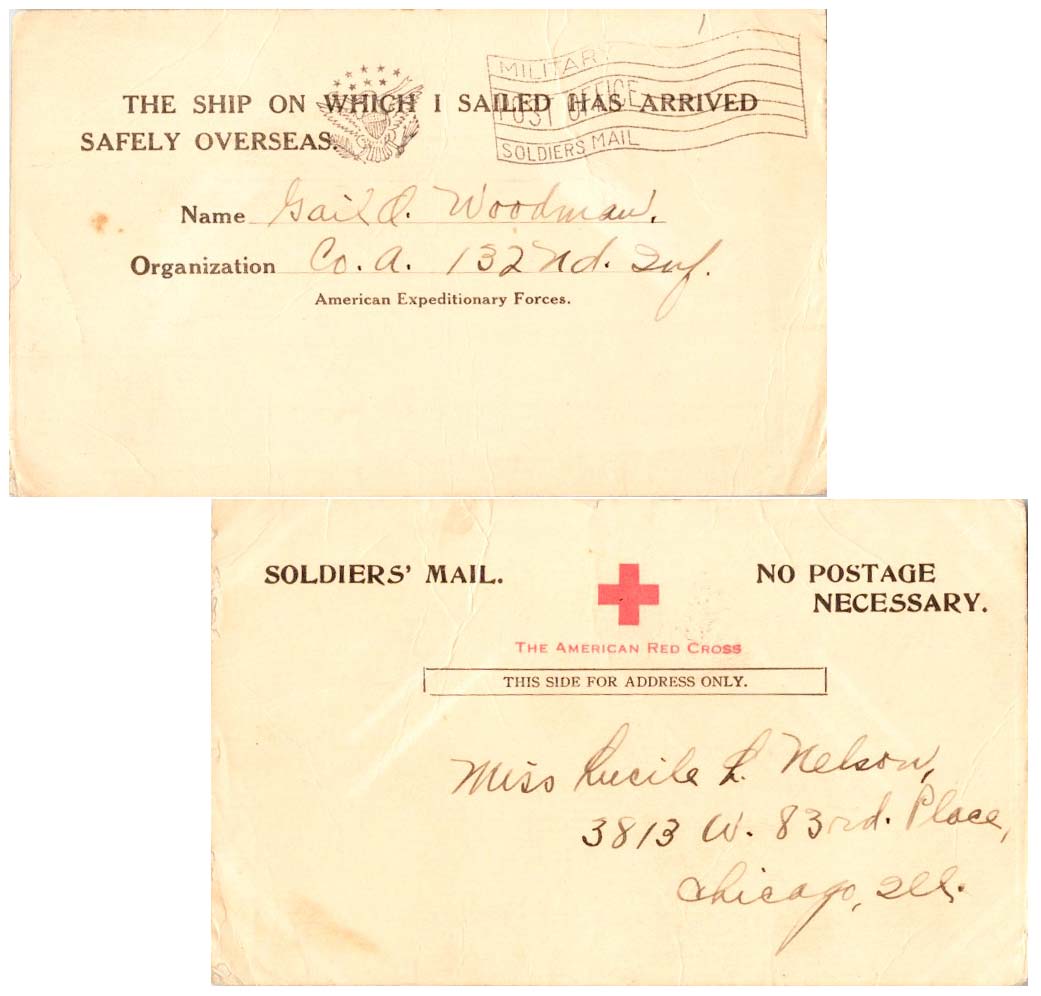 MILITARY
POST OFFICE
SOLDIERS MAIL
THE SHIP ON WHICH I SAILED HAS ARRIVED
SAFELY OVERSEAS.
Name Gail O. Woodman.
Organization Co. A. 132nd. Inf.
American Expeditionary Forces.
SOLDIERS' MAIL.
NO POSTAGE
NECESSARY.
THE AMERICAN RED CROSS
THIS SIDE FOR ADDRESS ONLY.
Miss Lucile L. Nelson,
3813 W. 83rd. Place,
Chicago, Ill.